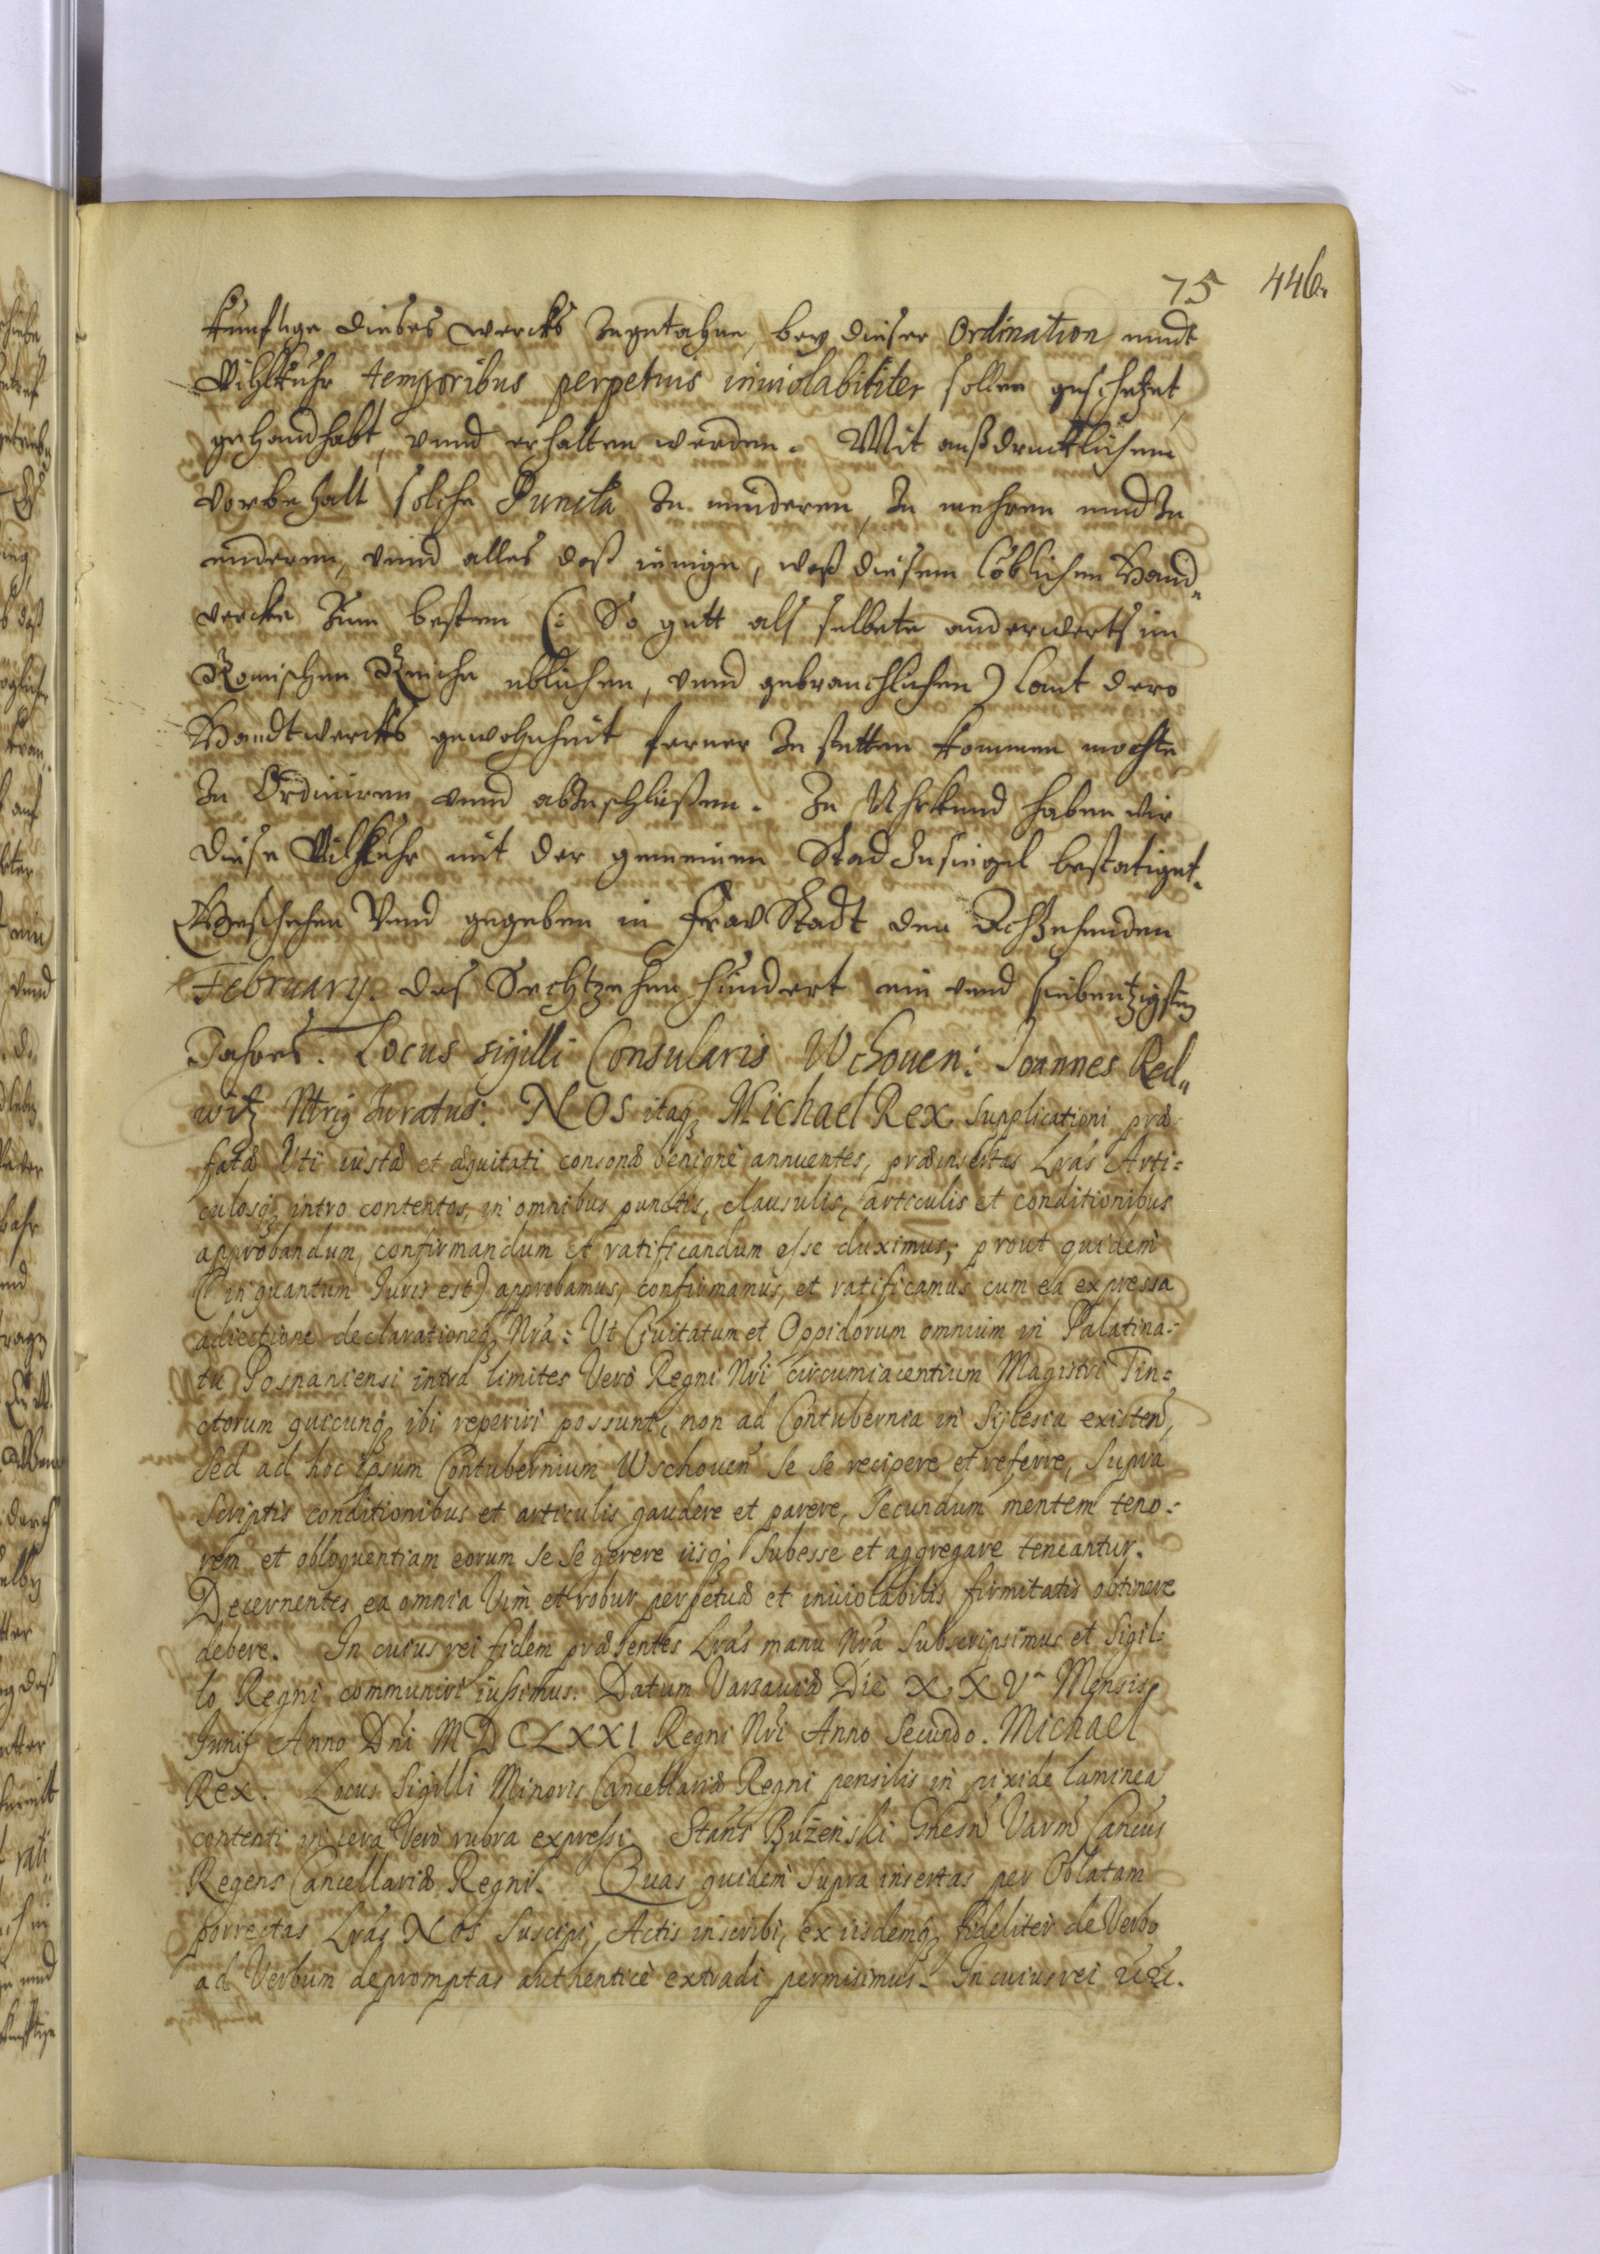 75 446.
kunftige dieses wercks Zugetahne, bey dieser Ordination undt
Wihlkuhr temporibus perpetuis inviolabiliter sollen geschetzet,
gehandhabt, vnnd erhalten werden. Mit außdrucklichem
vorbehalt solche Puncta Zu minderen, Zu mehren und Zu
enderen, vnnd alles daß ienige, waß diesem löblichen Hand„
wercke Zum besten (: So gutt als selbete anderwerts im
Romischen Reiche ublichen, vnnd gebrauchlichen) laut dero
Handtwercks gewohnheit ferner Zu statten kommen mochte
Zu Ordiniren vnnd abZuschlüßen. Zu Uhrkund haben wir
diese Wilkuhr mit der gemeinen Stad Insiegel bestatiget.
Geschehen Vnnd gegeben in FravStadt den Achzehenden
February. des Sechtzehen hundert ein vnnd siebentzigsten
Jahres. Locus sigilli Consularis Wschouen: Joannes Red„
witz Ntrij Juratus: NOS itaq Michael Rex Supplicationi præ
fatæ Uti iustæ et æquitati consonæ benigne annuentes, præinsertas Lras Arti=
culosq intro contentos, in omnibus punctis, clausulis, articulis et conditionibus
approbandum, confirmandum et ratificandum esse duximus, prout quidem
(in quantum Iuris est) approbamus, confirmamus, et ratificamus cum ea expressa
adiectione declarationeq Nra: Ut Civitatum et Oppidorum omnium in Palatina=
tu Posnaniensi intra limites Vero Regni Nri circumiacentium Magistri Tin=
ctorum quicunq ibi reperiri possunt, non ad Contubernia in Silesia existen,
Sed ad hoc ipsum Contubernium Wschouen Se Se recipere et referre, Supra
Scriptis conditionibus et articulis gaudere et parere, Secundum mentem teno=
rem et obloquentiam eorum Se Se gerere iisq Subesse et aggregare teneantur.
Decernentes ea omnia Vim et robur perpetuæ et inviolabilis firmitatis obtinere
debere. In cuius rei fidem præsentes Lras manu Nra Subscripsimus et Sigil=
lo Regni communiri iussimus. Datum Varsaviæ Die XXVa Mensis
Junij Anno Dni MDCLXXI Regni Nri Anno Secundo. Michael
Rex. Locus Sigilli Minoris Cancellariæ Regni pensilis in pixide laminea
contenti in cera Vero rubra expressi. Stans Bużenski Gnesn Varm Cancus
Regens Cancellariæ Regni. Quas quidem Supra insertas per Oblatam
porrectas Lras NOS Suscipi, Actis inscribi, ex iisdemq fideliter de Verbo
ad Verbum depromptas authentice extradi permisimus. In cuius rei